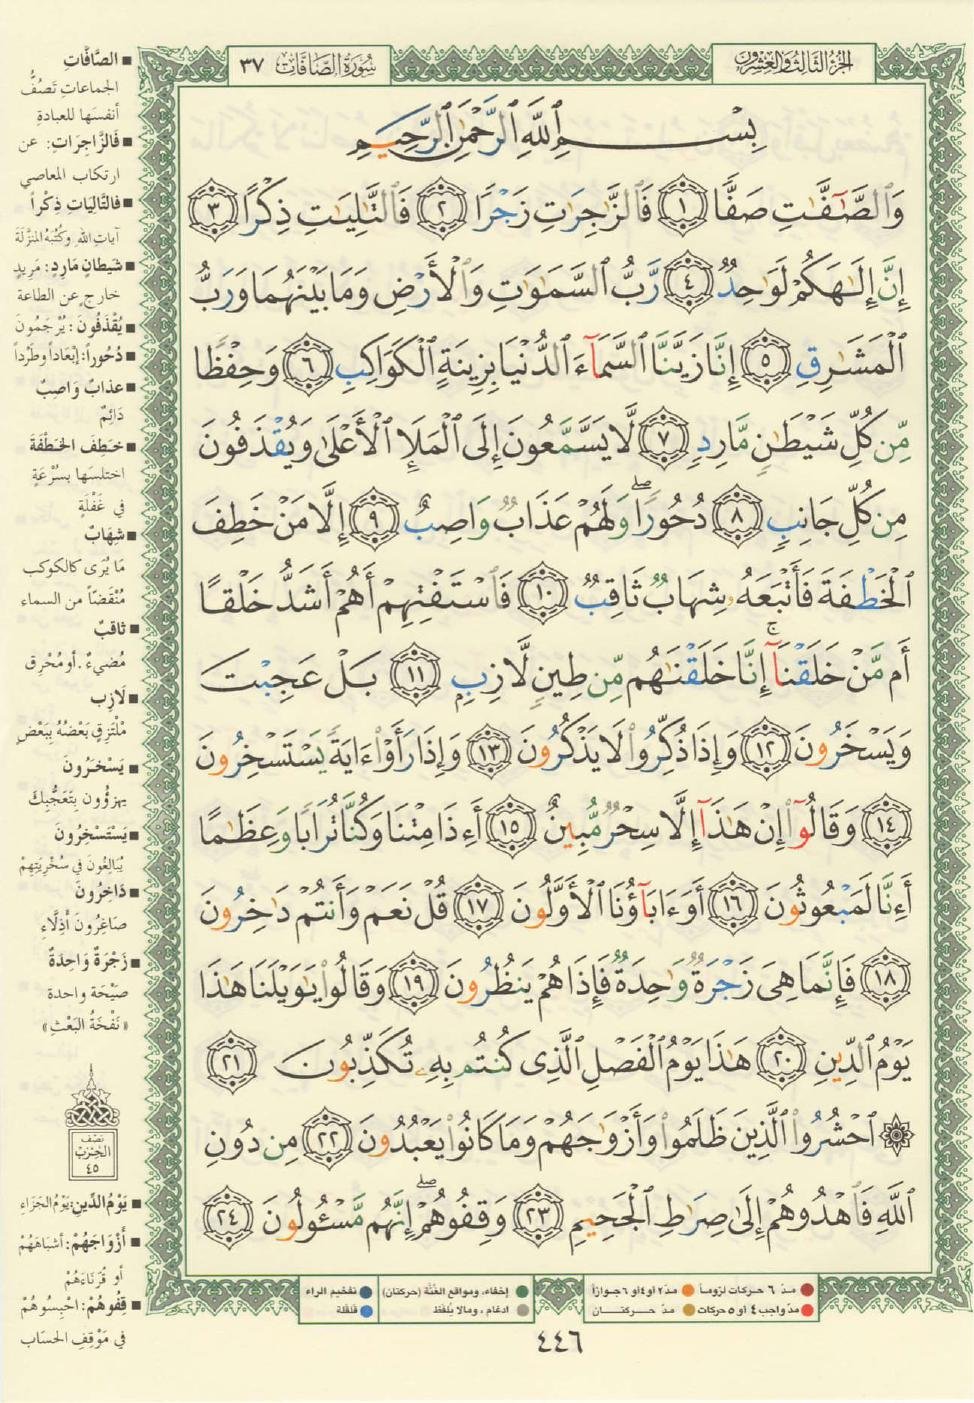 الجزء الثالث والعشرون
سُورَةُ الصَّافَّات ٣٧
بِسْمِ ٱللَّهِ ٱلرَّحْمَٰنِ ٱلرَّحِيمِ
وَٱلصَّٰٓفَّٰتِ صَفًّا ١ فَٱلزَّٰجِرَٰتِ زَجْرًا ٢ فَٱلتَّٰلِيَٰتِ ذِكْرًا ٣
إِنَّ إِلَٰهَكُمْ لَوَٰحِدٌ ٤ رَّبُّ ٱلسَّمَٰوَٰتِ وَٱلْأَرْضِ وَمَا بَيْنَهُمَا وَرَبُّ
ٱلْمَشَٰرِقِ ٥ إِنَّا زَيَّنَّا ٱلسَّمَآءَ ٱلدُّنْيَا بِزِينَةٍ ٱلْكَوَاكِبِ ٦ وَحِفْظًا
مِّن كُلِّ شَيْطَٰنٍ مَّارِدٍ ٧ لَّا يَسَّمَّعُونَ إِلَى ٱلْمَلَإِ ٱلْأَعْلَىٰ وَيُقْذَفُونَ
مِن كُلِّ جَانِبٍ ٨ دُحُورًا ۖ وَلَهُمْ عَذَابٌ وَاصِبٌ ٩ إِلَّا مَنْ خَطِفَ
ٱلْخَطْفَةَ فَأَتْبَعَهُۥ شِهَابٌ ثَاقِبٌ ١٠ فَٱسْتَفْتِهِمْ أَهُمْ أَشَدُّ خَلْقًا
أَم مَّنْ خَلَقْنَآ ۚ إِنَّا خَلَقْنَٰهُم مِّن طِينٍ لَّازِبٍ ١١ بَلْ عَجِبْتَ
وَيَسْخَرُونَ ١٢ وَإِذَا ذُكِّرُوا۟ لَا يَذْكُرُونَ ١٣ وَإِذَا رَأَوْا۟ ءَايَةً يَسْتَسْخِرُونَ
١٤ وَقَالُوٓا۟ إِنْ هَٰذَآ إِلَّا سِحْرٌ مُّبِينٌ ١٥ أَءِذَا مِتْنَا وَكُنَّا تُرَابًا وَعِظَٰمًا
أَءِنَّا لَمَبْعُوثُونَ ١٦ أَوَءَابَآؤُنَا ٱلْأَوَّلُونَ ١٧ قُلْ نَعَمْ وَأَنتُمْ دَٰخِرُونَ
١٨ فَإِنَّمَا هِىَ زَجْرَةٌ وَٰحِدَةٌ فَإِذَا هُمْ يَنظُرُونَ ١٩ وَقَالُوا۟ يَٰوَيْلَنَا هَٰذَا
يَوْمُ ٱلدِّينِ ٢٠ هَٰذَا يَوْمُ ٱلْفَصْلِ ٱلَّذِى كُنتُم بِهِۦ تُكَذِّبُونَ ٢١
۞ ٱحْشُرُوا۟ ٱلَّذِينَ ظَلَمُوا۟ وَأَزْوَٰجَهُمْ وَمَا كَانُوا۟ يَعْبُدُونَ ٢٢ مِن دُونِ
ٱللَّهِ فَٱهْدُوهُمْ إِلَىٰ صِرَٰطِ ٱلْجَحِيمِ ٢٣ وَقِفُوهُمْ ۖ إِنَّهُم مَّسْـُٔولُونَ ٢٤
■ الصَّافَّاتِ
الجماعاتِ تَصُفُّ
أنفسَها للعبادةِ
■ فَالزَّاجِرَاتِ: عن
ارتكاب المعاصي
■ فالتَّالِيَاتِ ذِكْراً
آياتِ الله وكُتُبَهُ المنزَّلَةَ
■ شَيطانٍ مَارِدٍ: مَرِيدٍ
خارجٍ عن الطاعة
■ يُقْذَفُونَ: يُرْجَمُونَ
■ دُحُوراً: إبْعَاداً وطَرْداً
■ عذابٌ وَاصِبٌ
دَائِمٌ
■ خَطِفَ الخَطْفَةَ
اختلسَها بسُرْعَةٍ
في غَفْلَةٍ
■ شِهَابٌ
مَا يُرَى كالكوكب
مُنْقَضّاً من السماء
■ ثاقبٌ
مُضيءٌ. أو مُحْرِق
■ لَازِبٍ
مُلْتَزِقٍ بَعْضُهُ بِبَعْضٍ
■ يَسْخَرُونَ
يهزؤُون بتَعَجُّبِكَ
■ يَسْتَسْخِرُونَ
يُبَالِغُونَ في سُخْرِيَتِهِمْ
■ دَاخِرُونَ
صَاغِرُونَ أذِلَّاءِ
■ زَجْرَةٌ وَاحِدَةٌ
صَيْحَة واحدة
«نَفْخَةُ البَعْثِ»
نصف
الحِزب
٤٥
■ يَوْمُ الدِّينِ: يَوْمُ الجَزَاءِ
■ أَزْوَاجَهُمْ: أشباهَهُمْ
أو قُرَنَاءَهُمْ
■ قِفُوهُمْ: احْبِسُوهُمْ
في مَوْقِفِ الحسَاب
مدّ ٦ حركات لزوماً مدّ ٢ أو ٤ أو ٦ جوازاً إخفاء، ومواقع الغُنَّة (حركتان) تفخيم الراء
مدّ واجب ٤ أو ٥ حركات مدّ حركتان ادغام، ومالا يُلفظ قلقلة
٤٤٦